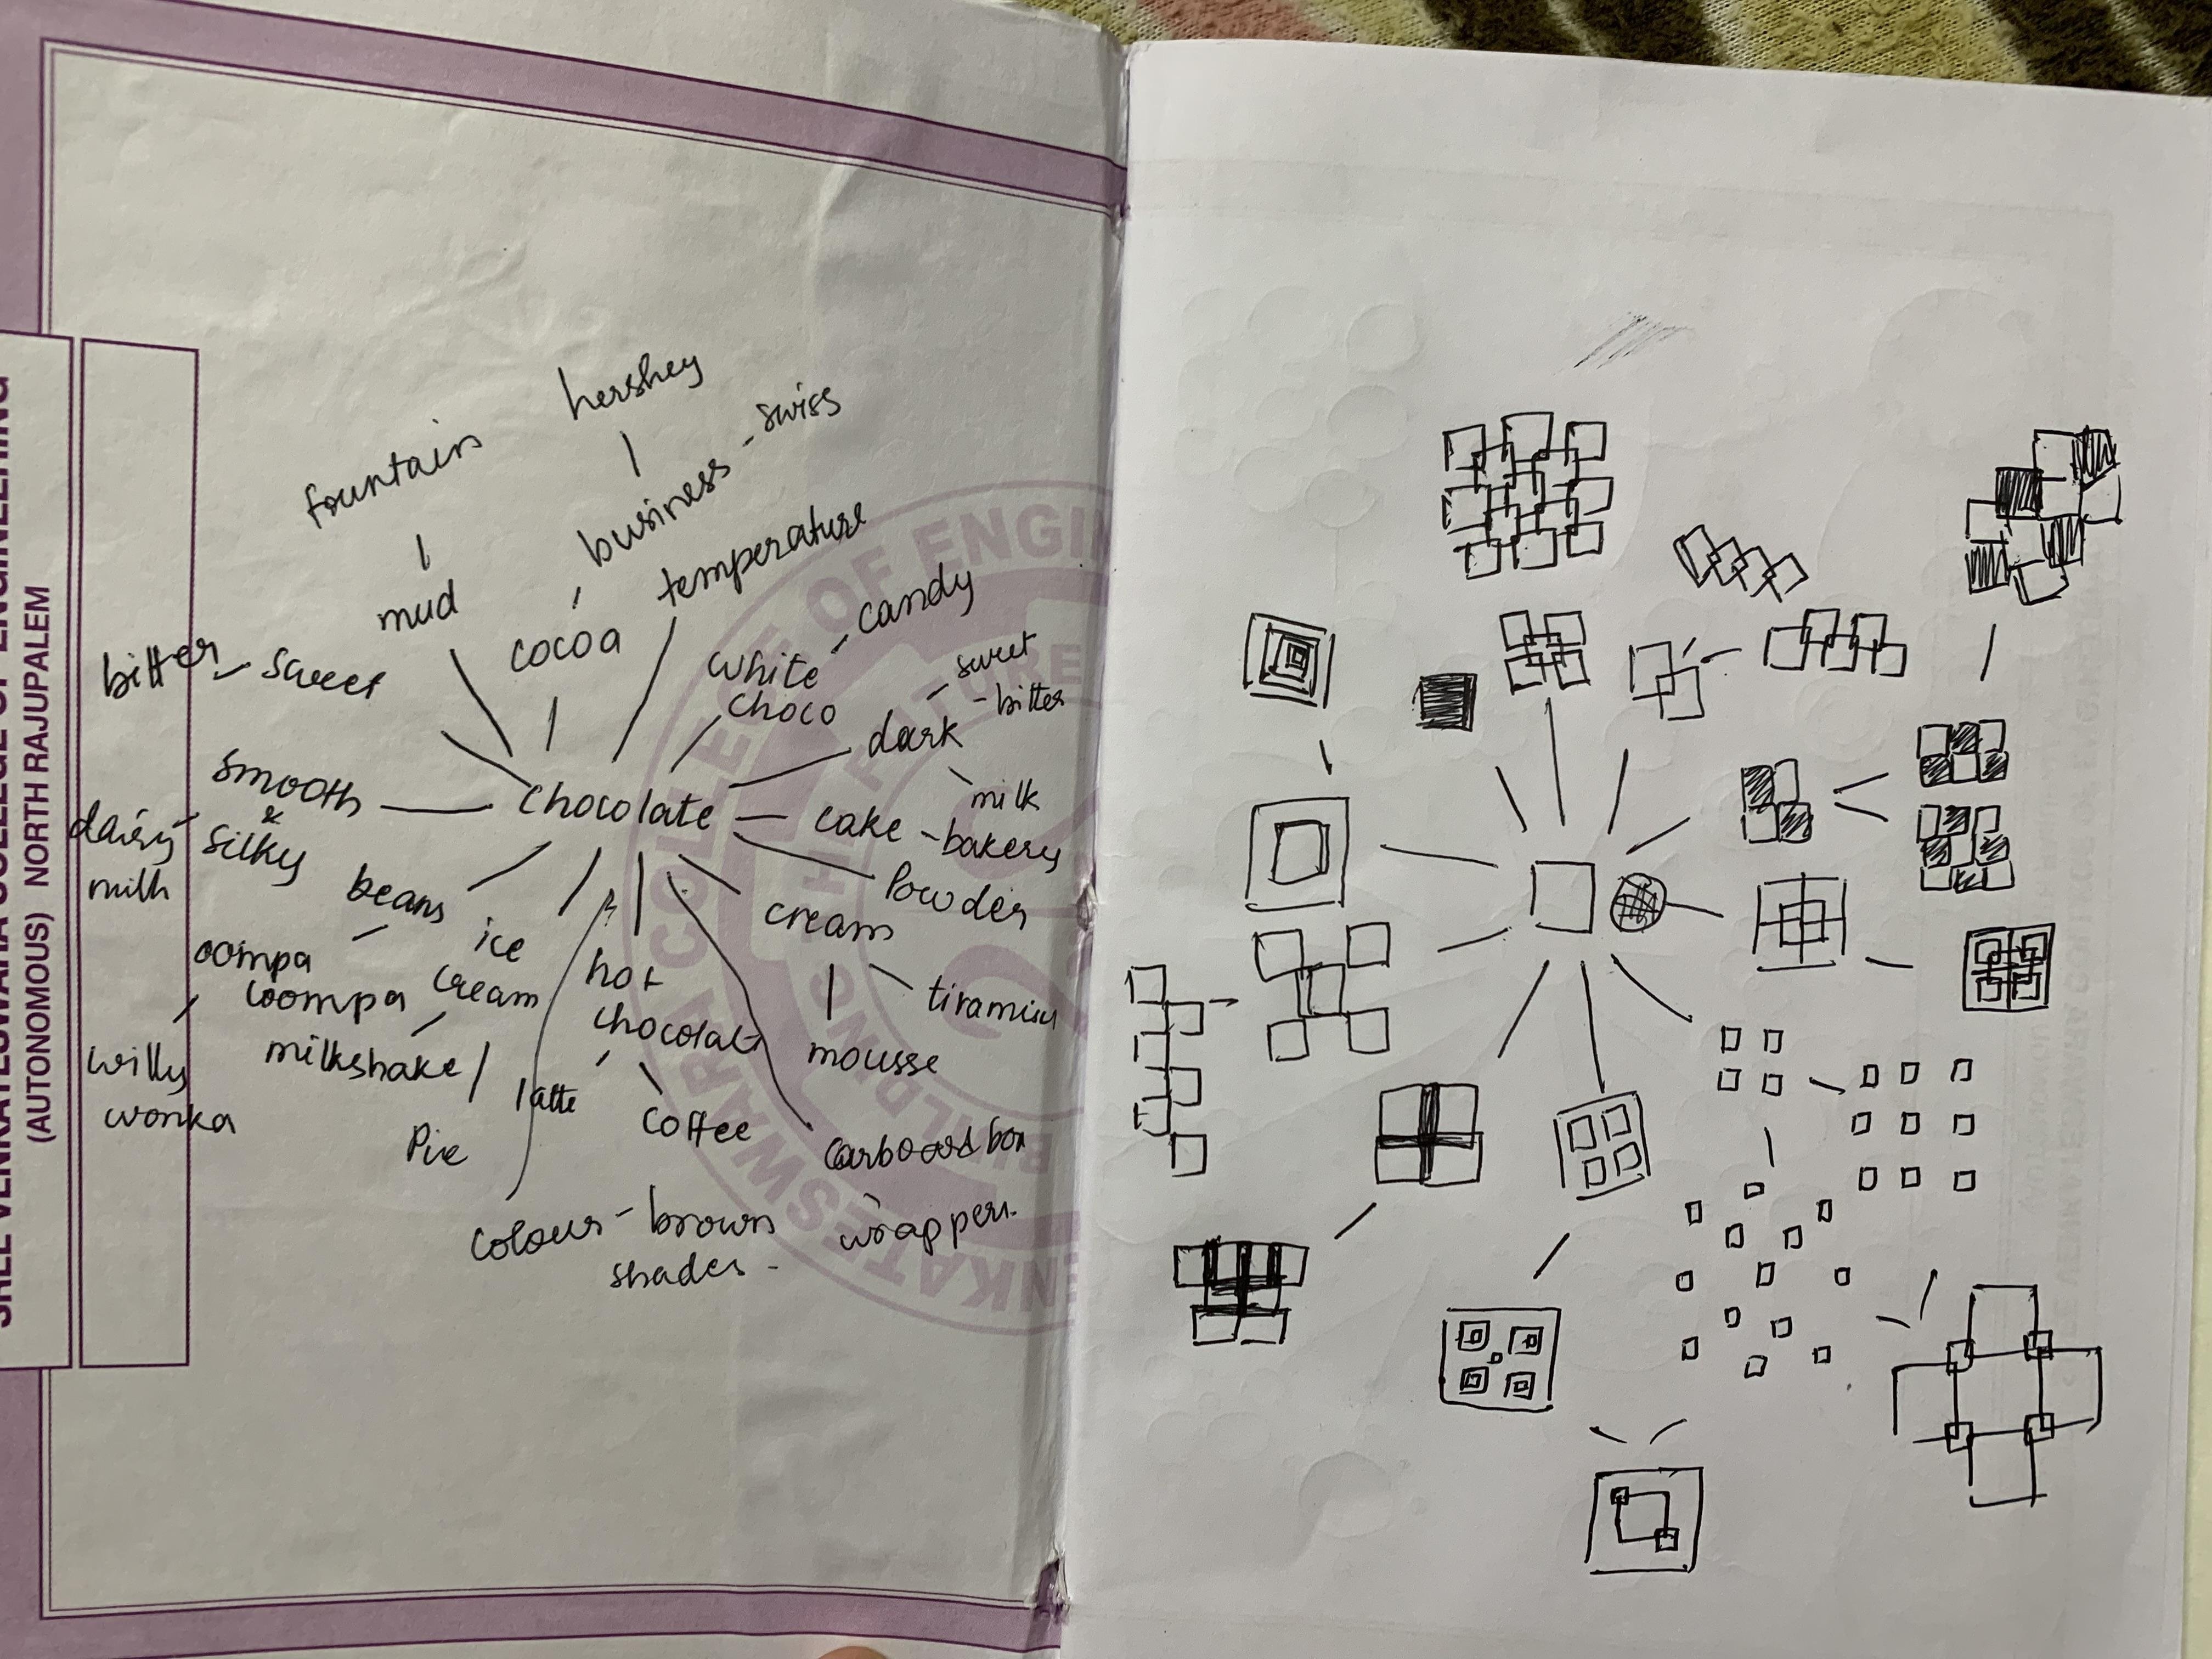 hershey
swiss
fountain
business
temperature
mud
cocoa
candy
bitter
sweet
white
choco
sweet
bitter
dark
smooth
&
silky
chocolate
milk
cake - bakery
milk
beans
powder
cream
ice
cream
oompa
loompa
hot
chocolate
tiramisu
milkshake
mousse
willy
wonka
latte
coffee
Pie
carboard box
colour - brown
shades -
wrapper.
SREE VENKATESWARA COLLEGE OF ENGINEERING
(AUTONOMOUS) NORTH RAJUPALEM
COLLEGE OF ENGIN